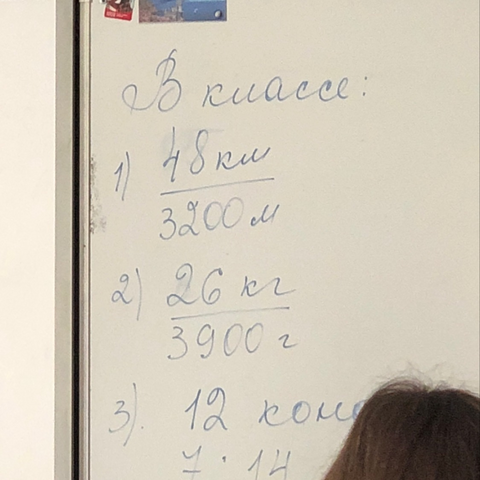 В классе:
1) 48 км
3200 м
2) 26 кг
3900 г
3). 12
7 · 14